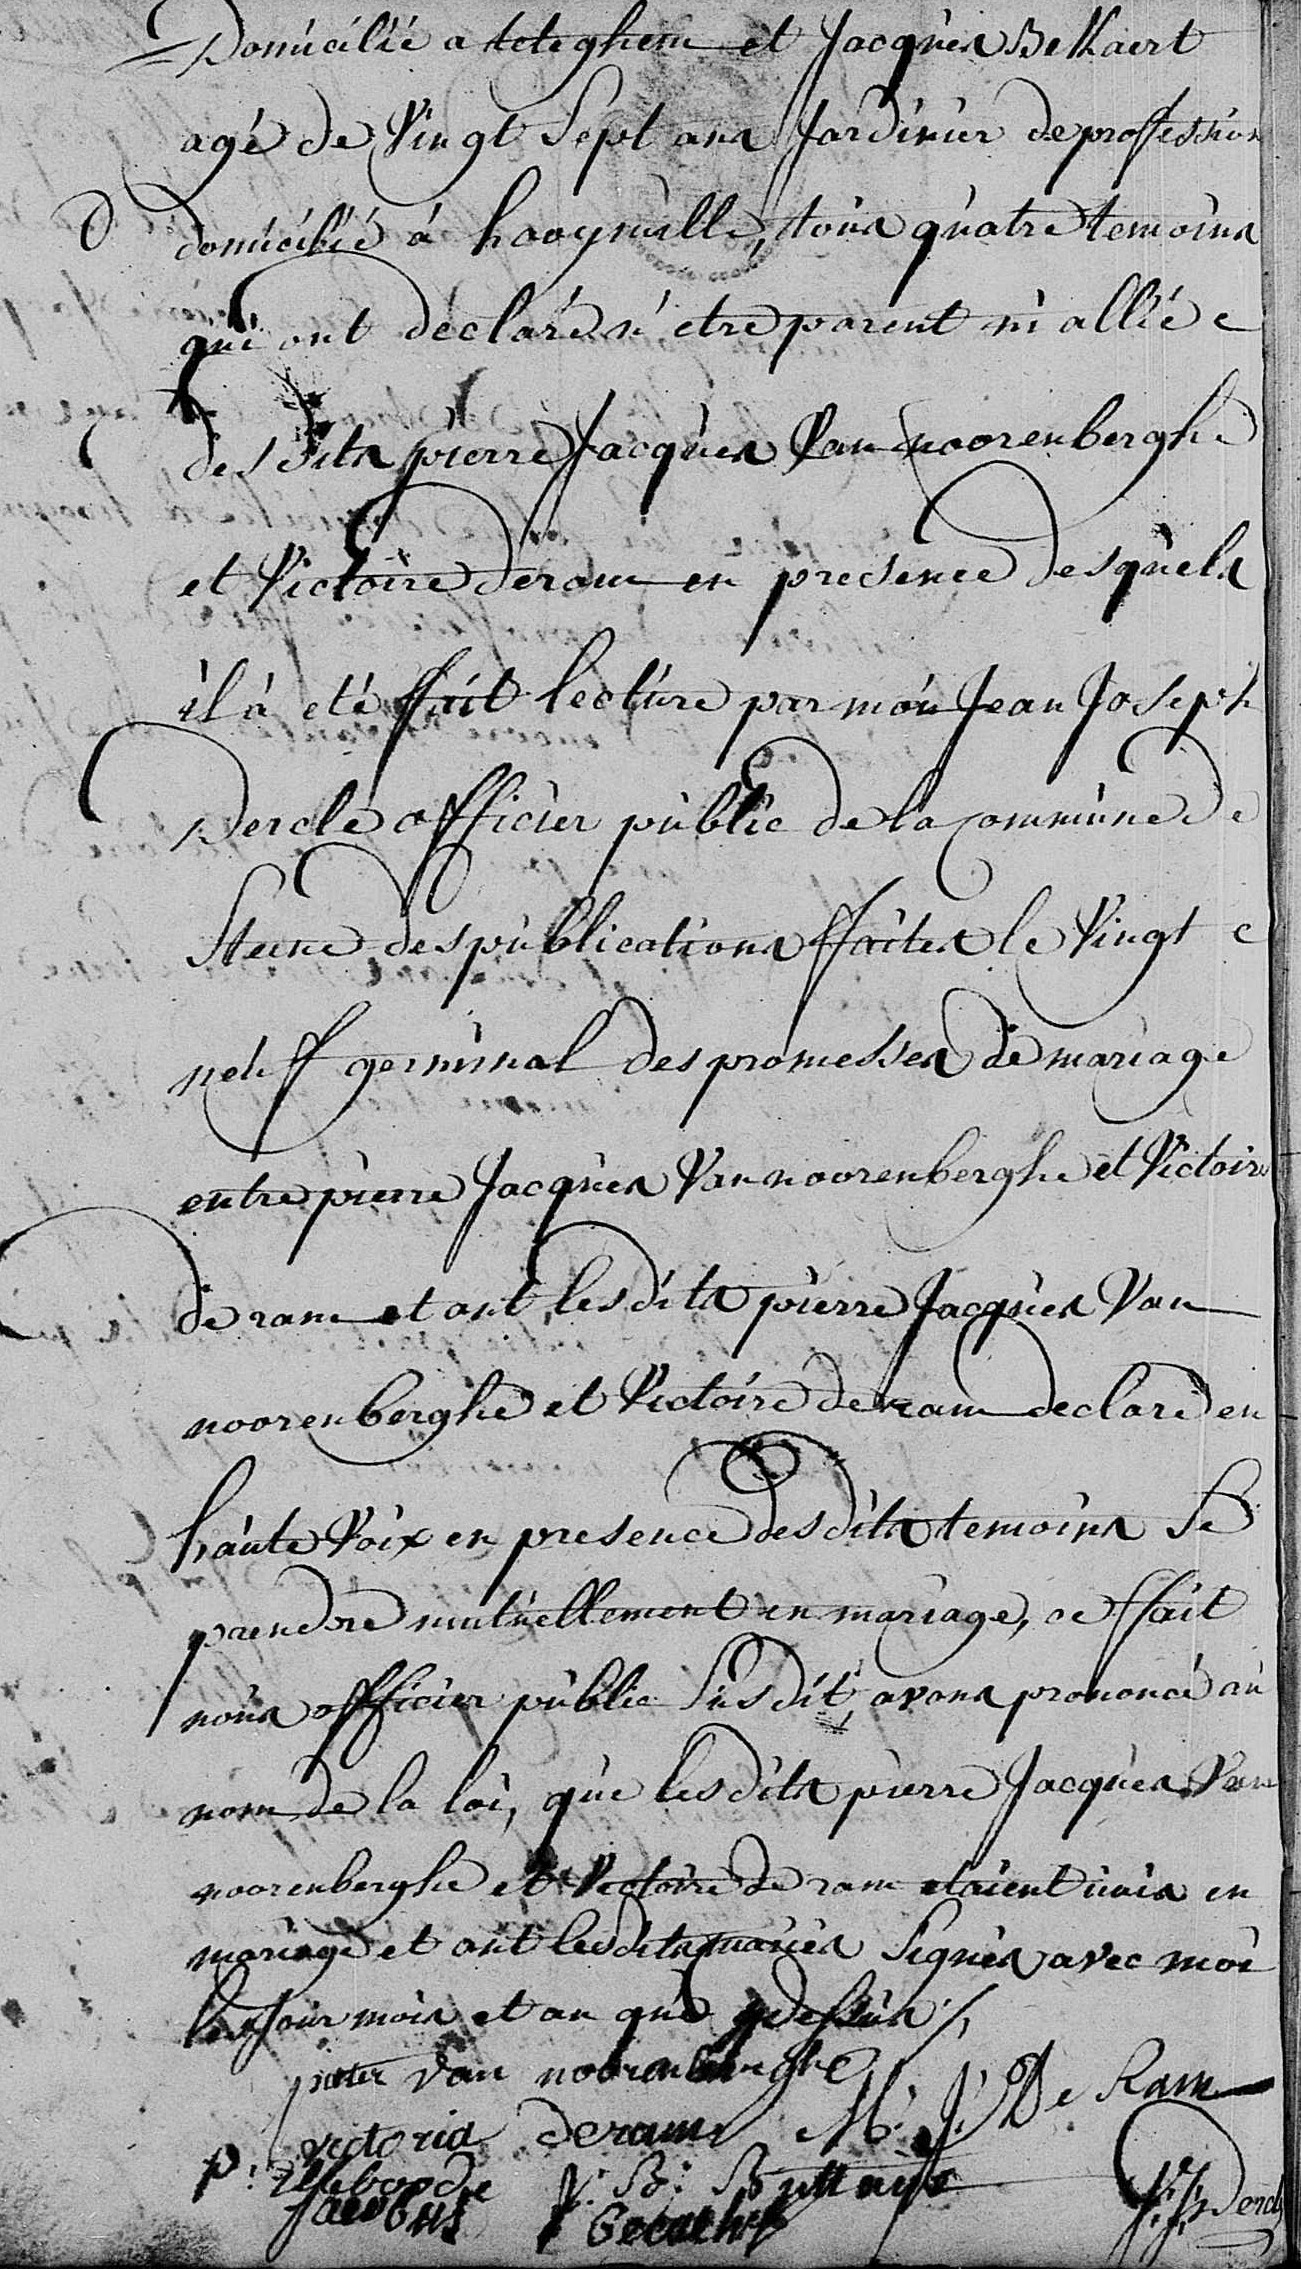 Domicilié a teteghem et Jacques Bekaert
agé de Vingt Sept ans Jardinier de profession
domicilié á hooymille, tous quatre temoins
qui ont déclaré n'etre parent ni allié
des dits pierre Jacques Van noorenberghe
et Victoire deram en presence desquels
il á eté ffait lecture par moi Jean Joseph
Dercle officier public de la Commune de
Steene des publications ffaites le Vingt
neuff germinal des promesses de mariage
entre pierre Jacques Van noorenberghe et Victoire
de ram et ont, lesdits pierre Jacques Van
noorenberghe et Victoire de ram declaré en
haute Voix en presence des dits temoins Se
prendre mutuellement en mariage, ce ffait
nous officier public Susdit, avons prononcé au
nom de la loi, que lesdits pierre Jacques Van
noorenberghe et Victoire de ram etaient unis en
mariage et ont lesdits mariés Signés avec moi
les Jour mois et an que dessus
pieter van noorenberghe
victoria deram M: J: De Ram
p: B: Jacobus
J: J: Dercle